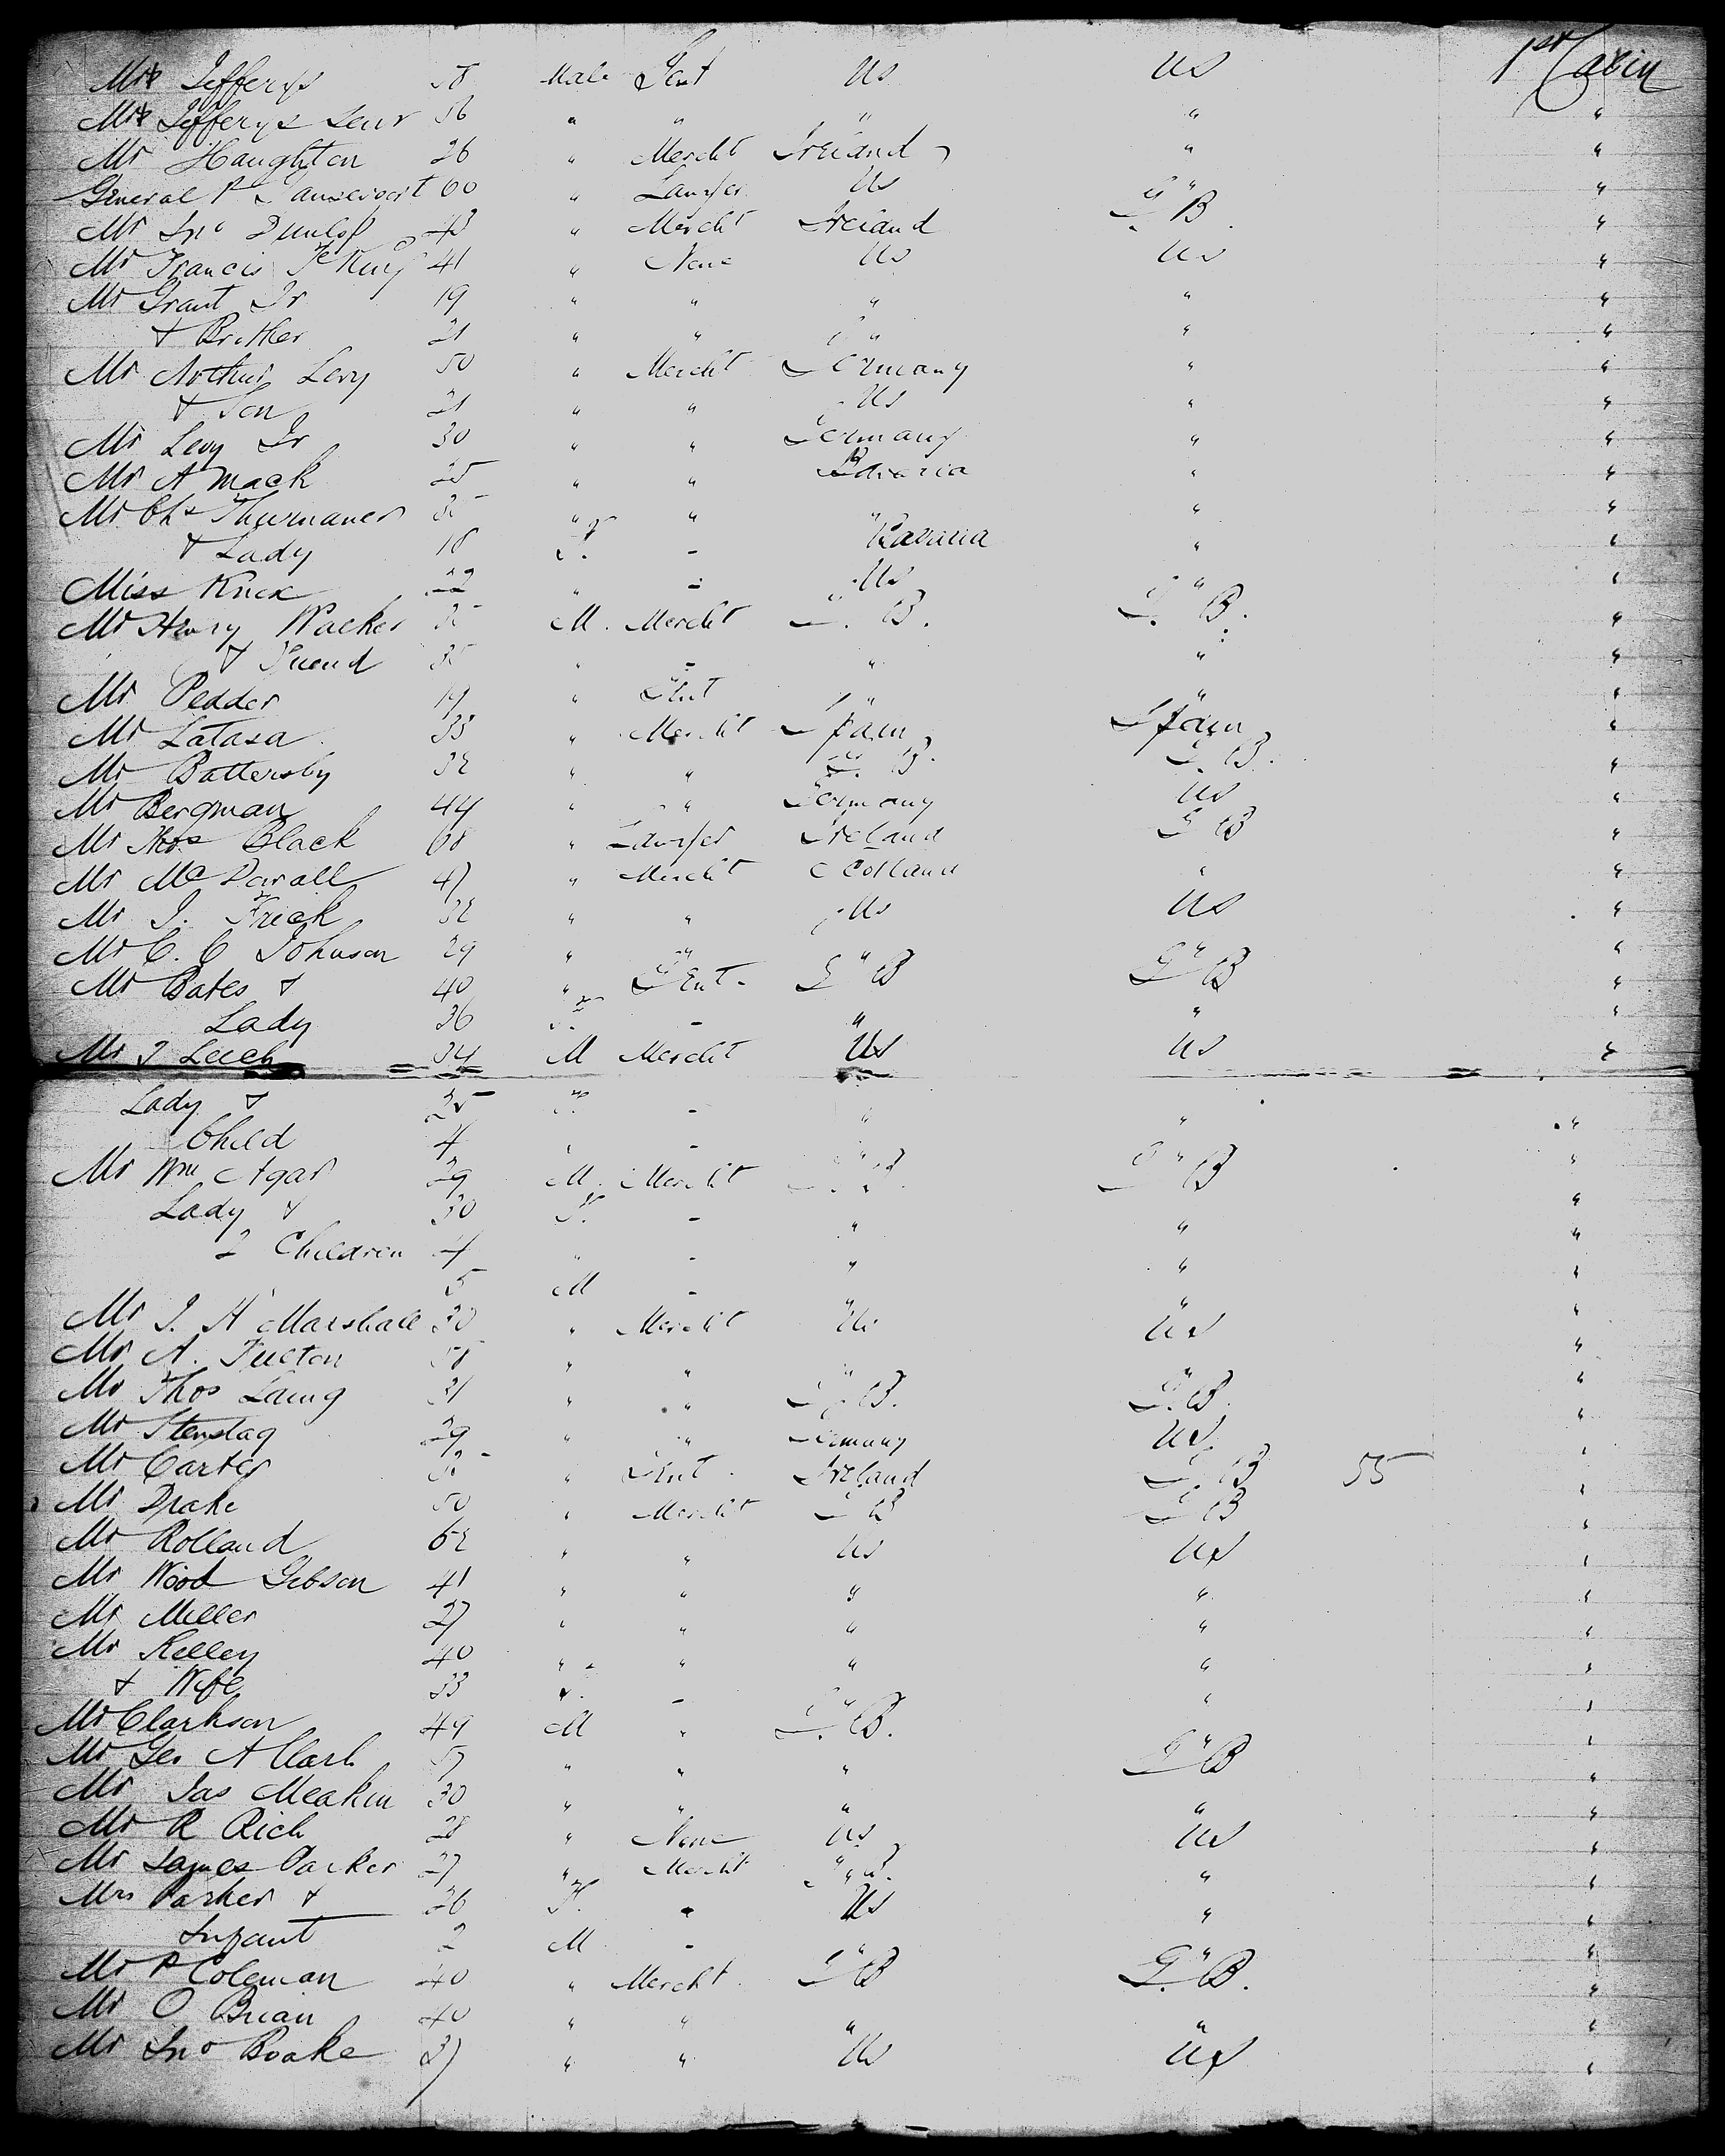 1st Cabin
Mr Jefferys 58 Male Gent US US
Mr Jefferys Senr 56 " " " " "
Mr Haughton 26 " Mercht Ireland " "
General P Gansevoort 60 " Lawyer US " "
Mr Jno Dunlop 43 " Mercht Ireland G B "
Mr Francis 41 " None US US "
Mr Grant Jr 19 " " " " "
& Brother 21 " " " " "
Mr Arthur Levy 50 " Mercht Germany " "
& Son 21 " " US " "
Mr Levy Jr 30 " " Germany " "
Mr A Mack 25 " " Bavaria " "
Mr Chs Thurmauer " " " " "
& Lady 18 F. - Bavaria " "
Miss Knex 22 " - US " "
Mr Henry Walker M. Mercht G. B. G. B. "
& Friend 35 " - " " "
Mr Pedder 19 " Gent " " "
Mr Latasa 35 " Mercht Spain Spain "
Mr Battersby 32 " " G. B. G. B. "
Mr Bergman 44 " " Germany US "
Mr Thos Black 68 " Lawyer Ireland G B "
Mr Mc Dowall 47 " Mercht Scotland " "
Mr J. Frick 32 " " US US "
Mr C. C Johnson 29 " " " " "
Mr Bates & 40 " Gent. G B G B "
Lady 36 F. - " " "
Mr J Leech 34 M Mercht US US "
Lady & 25 F. - " " "
Child 4 " - " " "
Mr Wm Agar 29 M. Mercht G B G B "
Lady & 30 F. - " " "
2 Children 4 " - " " "
5 M - " " "
Mr J. H Marshall 30 " Mercht US US "
Mr A. Fulton 58 " " " " "
Mr Thos Laing 31 " " G. B. G. B. "
Mr 29 " " Germany US "
Mr Carter " Gent. Ireland G B 55 "
Mr Drake 50 " Mercht G B G B "
Mr Rolland 62 " " US US "
Mr Wood Gibson 41 " " " " "
Mr Miller 27 " " " " "
Mr Kelley 40 " " " " "
& Wife 33 F. - " " "
Mr Clarkson 49 M " G. B. " "
Mr Geo A Clark 57 " " " G B "
Mr Jas Meakin 30 " " " " "
Mr R Rich 28 " None US US "
Mr James Parker 27 " Mercht G. B. " "
Mrs Parker & 26 F. " US " "
Infant 2 M - " " "
Mr P Coleman 40 " Mercht. G B G. B. "
Mr O Brian 40 " " " " "
Mr Jno Boake 37 " " US US "